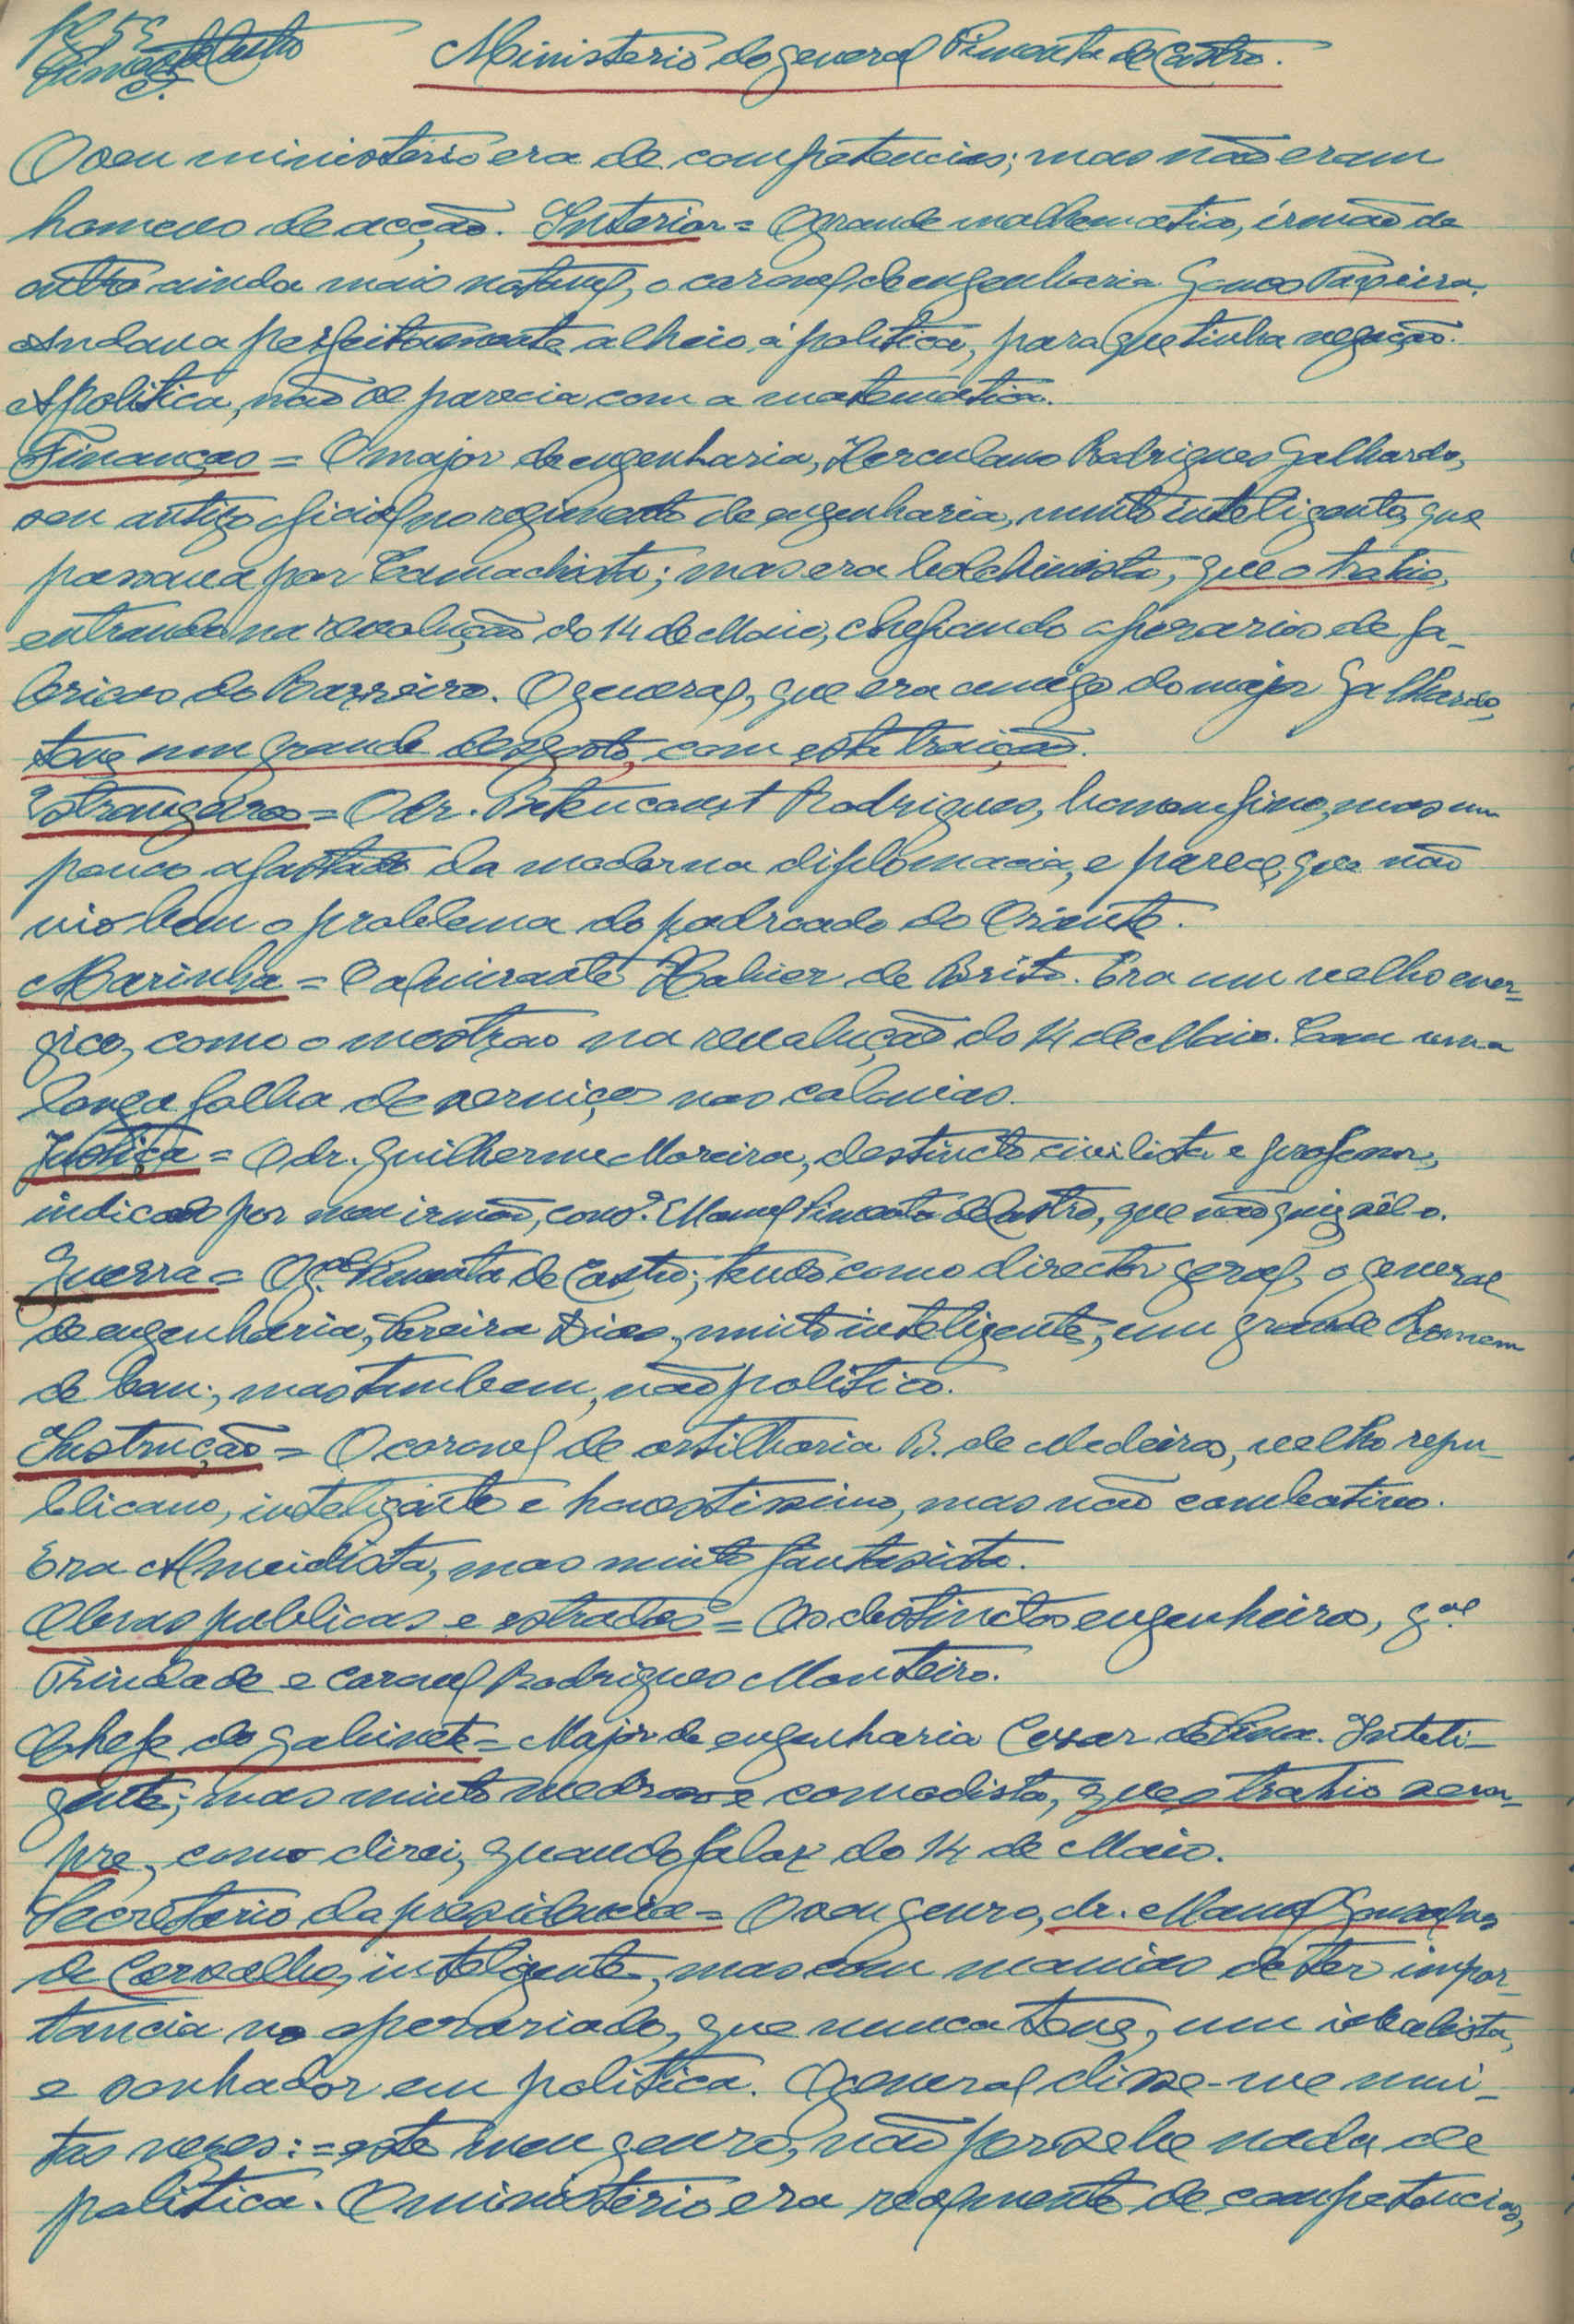 Ministerio do general Pimenta de Castro.
Pimenta de Castro
O seu ministerio era de competencias; mas não eram
homens de acção. Interior = O grande mathematico, irmão de
outro ainda mais notavel, o coronel de engenharia Gomes Teixeira.
Andava perfeitamente alheio á politica, para que tinha negação.
A politica, não se parecia com a matemática.
Finanças = O major de engenharia, Herculano Rodrigues Galhardo,
seu antigo oficial no regimento de engenharia, muito inteligente, que
passava por Camachista; mas era bolchevista, que o trahio,
entrando na revolução do 14 de Maio, chefiando operarios de fa-
bricas do Barreiro. O general, que era amigo do major Galhardo,
teve um grande desgosto, com esta traição.
Estrangeiros = O dr. Betencourt Rodrigues, homem fino, mas um
pouco afastado da moderna diplomacia, e parece, que não
vio bem o problema do padroado do Oriente.
Marinha = O almirante Xabier de Brito. Era um velho ener-
gico, como o mostrou na revolução do 14 de Maio. Com uma
longa folha de serviços nas colonias.
Justiça = O dr. Guilherme Moreira, destincto civilista e professor,
indicado por meu irmão, cons.º Manuel Pimenta de Castro, que não quiz sêl-o.
Guerra = O g.al Pimenta de Castro; tendo como director geral, o general
de engenharia, Pereira Dias, muito inteligente, um grande homem
de bem; mas tambem, não politico.
Instrucção = O coronel de artilharia B. de Medeiros, velho repu-
blicano, inteligente e honestissimo, mas não combativo.
Era Almeidista, mas muito fantasista.
Obras publicas e estradas = Os destinctos engenheiros, g.al
Trindade e coronel Rodrigues Monteiro.
Chefe do gabinete = Major de engenharia Cesar de Lima. Inteli-
gente; mas muito medroso e comodista, que o trahio sem-
pre, como direi, quando falar do 14 de Maio.
Secretario da presidencia = O seu genro, dr. Manuel Gonsalves
de Carvalho, inteligente, mas com manias de ter impor-
tancia no operariado, que nunca teve, um idealista,
e sonhador em politica. O general disse-me mui-
tas vezes: = este meu genro, não persebe nada de
politica. O ministerio era realmente de competencias,